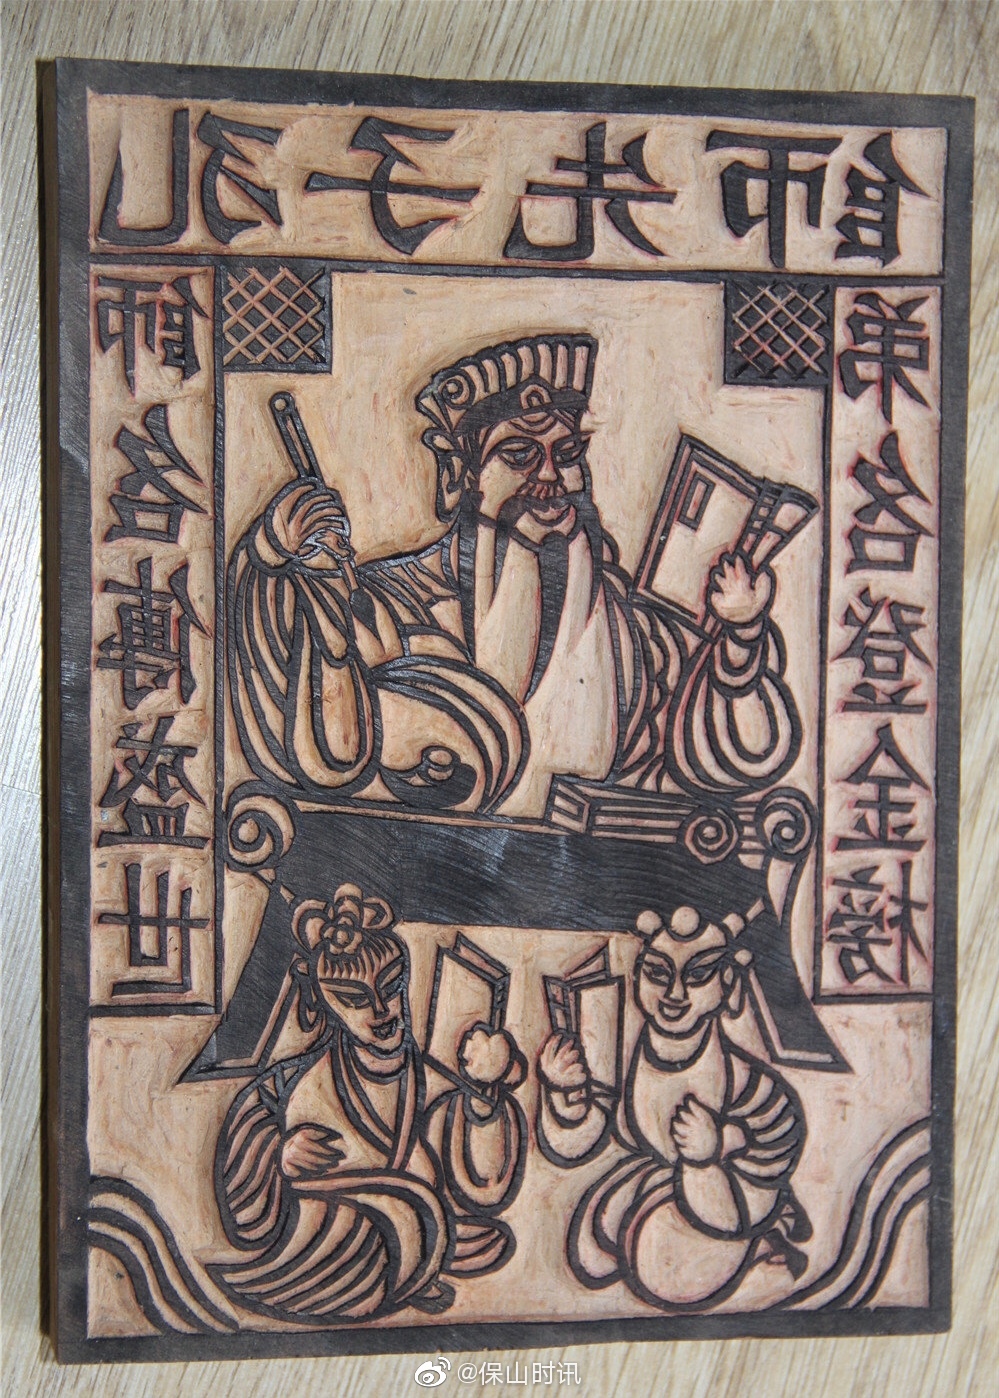 孔子先師
師名傳盛世
弟名登金榜
@保山时讯